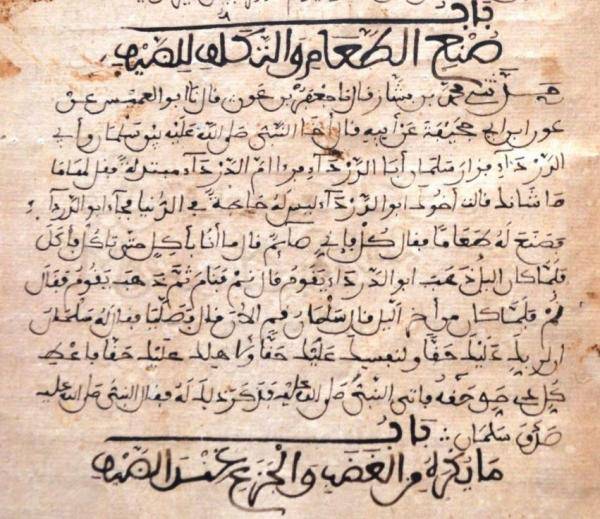 باب
صنع الطعام والتكلف للضيف
حدثني محمد بن بشار قال نا جعفر بن عون قال نا ابو العميس عن
عون ابن ابي جحيفة عن أبيه قال آخا النبي صلى الله عليه بين سلمان وأبي
الدرداء فزار سلمان أبا الدرداء فرءا ام الدرداء مبتذلة فقال لها ما
ما شانك قالت أخوك ابو الدرداء ليس له حاجة في الدنيا فجاء ابو الدرداء
فصنع له طعاما فقال كل فإني صائم قال ما أنا بآكل حتى تأكل فأكل
فلما كان اليل ذهب ابو الدرداء يقوم قال نم فنام ثم ذهب يقوم فقال
نم فلما كان من آخر اليل قال سلمان قم الآن قال فصليا فقال له سلمان
ان لربك عليك حقا ولنفسك عليك حقا ولاهلك عليك حقا فاعط
كل ذي حق حقه فاتى النبي صلى الله عليه فذكر ذلك له فقال النبي صلى الله عليه
صدق سلمان باب
ما يكره من الغضب والجزع عند الضيف